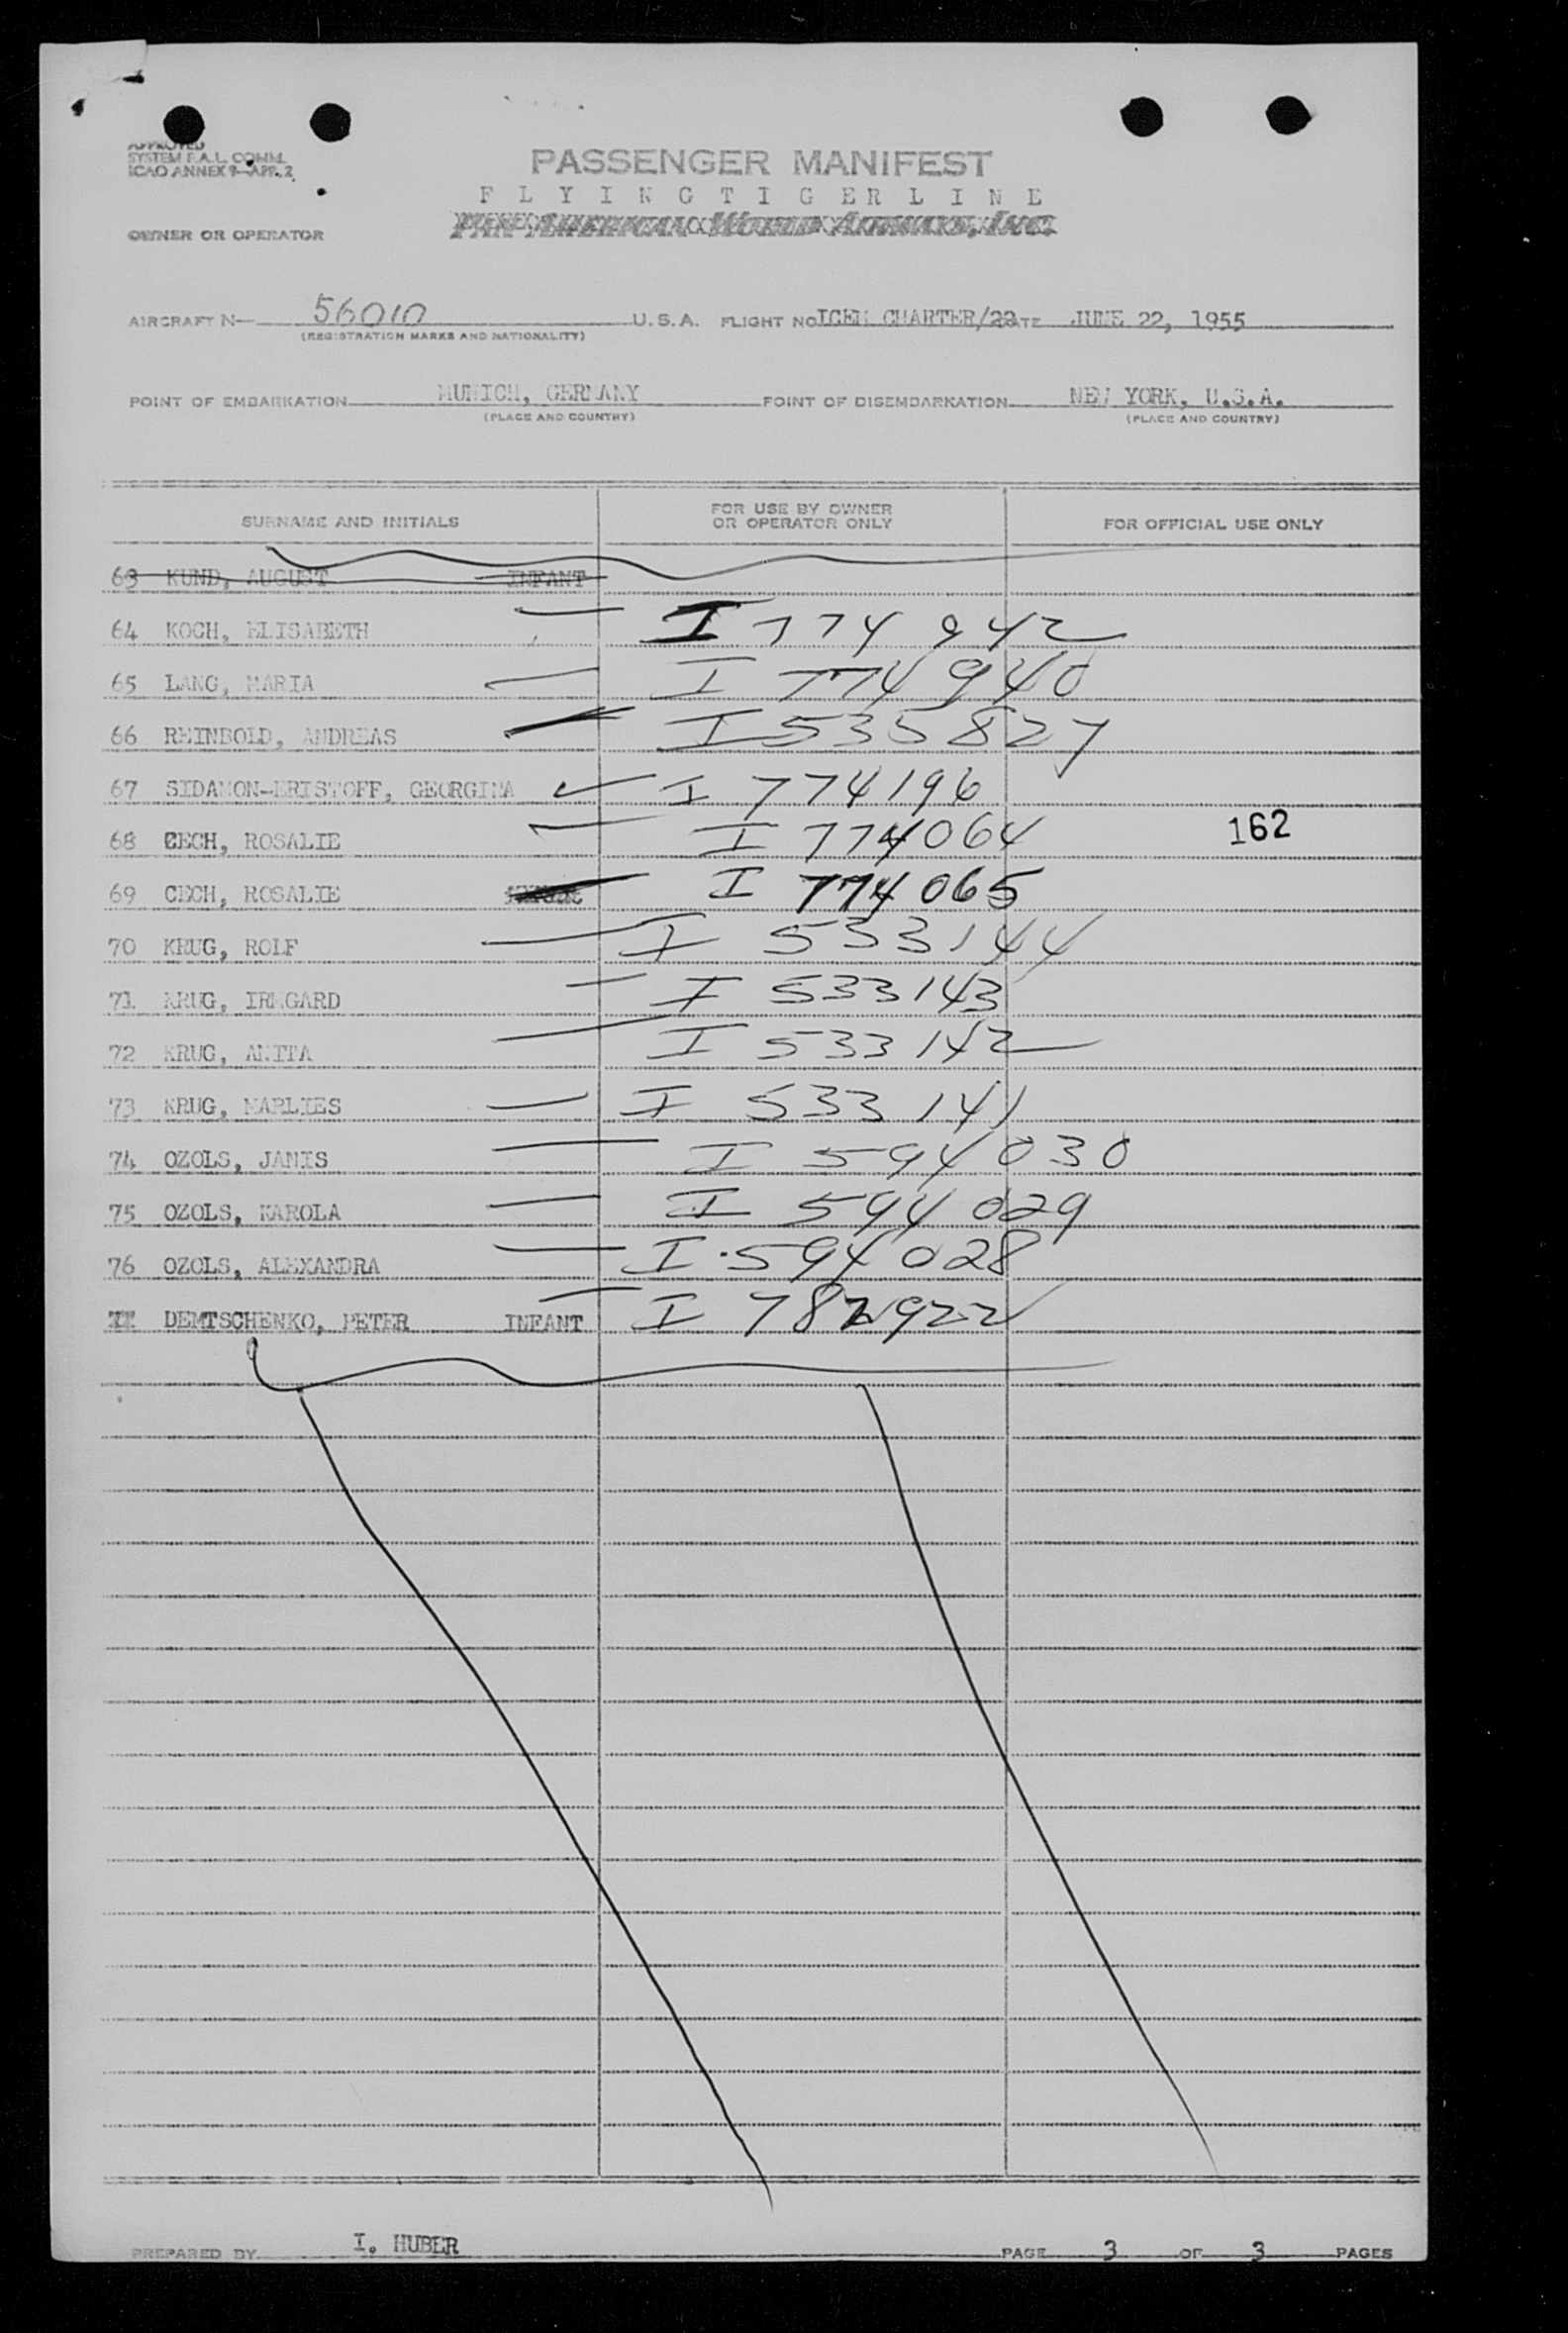 APPROVED
SYSTEM F.A.L. COMM.
ICAO ANNEX 9-APP. 2
PASSENGER MANIFEST
F L Y I N G T I G E R L I N E
PAN AMERICAN WORLD AIRWAYS, INC.
OWNER OR OPERATOR
AIRCRAFT N— 56010 U.S.A. FLIGHT NO. ICEM CHARTER/22 DATE JUNE 22, 1955
(REGISTRATION MARKS AND NATIONALITY)
POINT OF EMBARKATION MUNICH, GERMANY POINT OF DISEMBARKATION NEW YORK, U.S.A.
(PLACE AND COUNTRY) (PLACE AND COUNTRY)
SURNAME AND INITIALS FOR USE BY OWNER OR OPERATOR ONLY FOR OFFICIAL USE ONLY
63 KUND, AUGUST INFANT
64 KOCH, ELISABETH I 774942
65 LANG, MARIA I 774940
66 REINBOLD, ANDREAS I 535827
67 SIDAMON-ERISTOFF, GEORGINA I 774196
68 CECH, ROSALIE I 774064 162
69 CECH, ROSALIE I 774065
70 KRUG, ROLF I 533144
71 KRUG, IRMGARD I 533143
72 KRUG, ANITA I 533142
73 KRUG, MARLIES I 533141
74 OZOLS, JANIS I 594030
75 OZOLS, KAROLA I 594029
76 OZOLS, ALEXANDRA I 594028
DEMTSCHENKO, PETER INFANT I
PREPARED BY I. HUBER PAGE 3 OF 3 PAGES